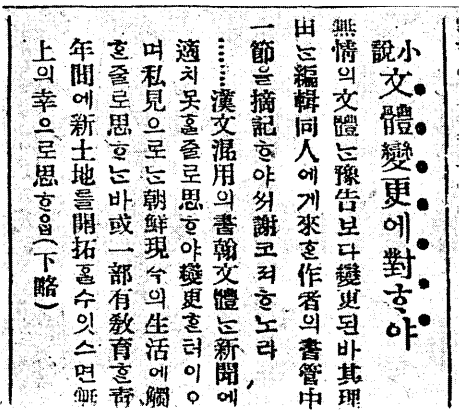 小說 文體變更에對ᄒᆞ야
無情의文體ᄂᆞᆫ豫告보다變更된바其理
由ᄂᆞᆫ編輯同人에게來ᄒᆞᆫ作者의書管中
一節을摘記ᄒᆞ야써謝코져ᄒᆞ노라
……漢文混用의書翰文體ᄂᆞᆫ新聞에
適치못ᄒᆞᆯ줄로思ᄒᆞ야變更ᄒᆞᆫ터이오
며私見으로ᄂᆞᆫ朝鮮現今의生活에觸
ᄒᆞᆫ줄로思ᄒᆞᄂᆞᆫ바或一部有敎育ᄒᆞᆫ靑
年間에新土地를開拓ᄒᆞᆯ수잇스면無
上의幸으로思ᄒᆞ옵(下略)